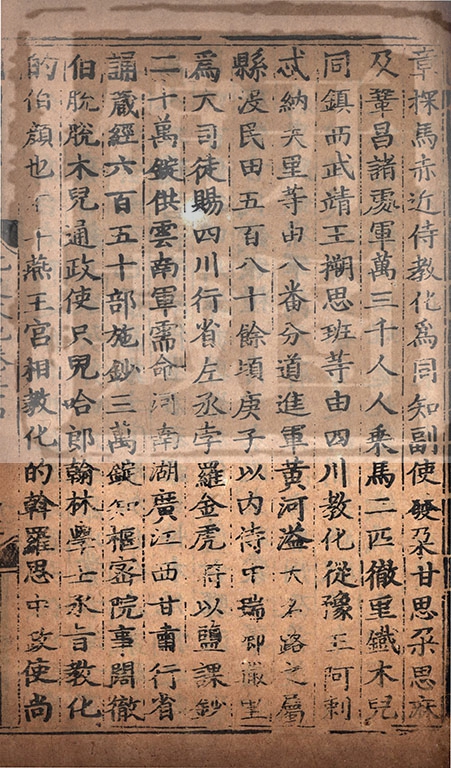 章探馬赤近侍教化爲同知副使發朶甘思朶思麻
及鞏昌諸處軍萬三千人人乘馬二匹徹里鐵木兒
同鎮西武靖王搠思班等由四川教化從豫王阿剌
忒納失里等由八番分道進軍黃河溢大名路之屬
縣没民田五百八十餘頃庚子以內侍中瑞卿撒里
爲大司徒賜四川行省左丞孛羅金虎符以鹽課鈔
二十萬錠供雲南軍需命河南湖廣江西甘肅行省
誦藏經六百五十部施鈔三萬錠知樞密院事闊徹
伯脫脫木兒通政使只兒哈郎翰林學士承旨教化
的伯顔也不干燕王宮相教化的斡羅思中政使尚